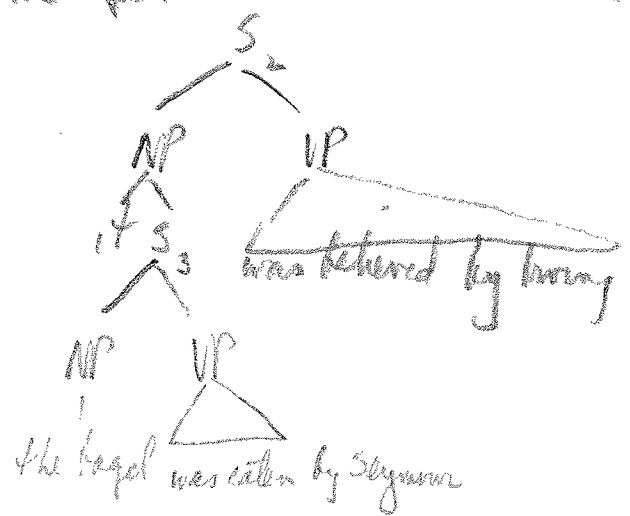 S₂
NP VP
it S₃
was believed by Irving
NP VP
the bagel was eaten by Seymour